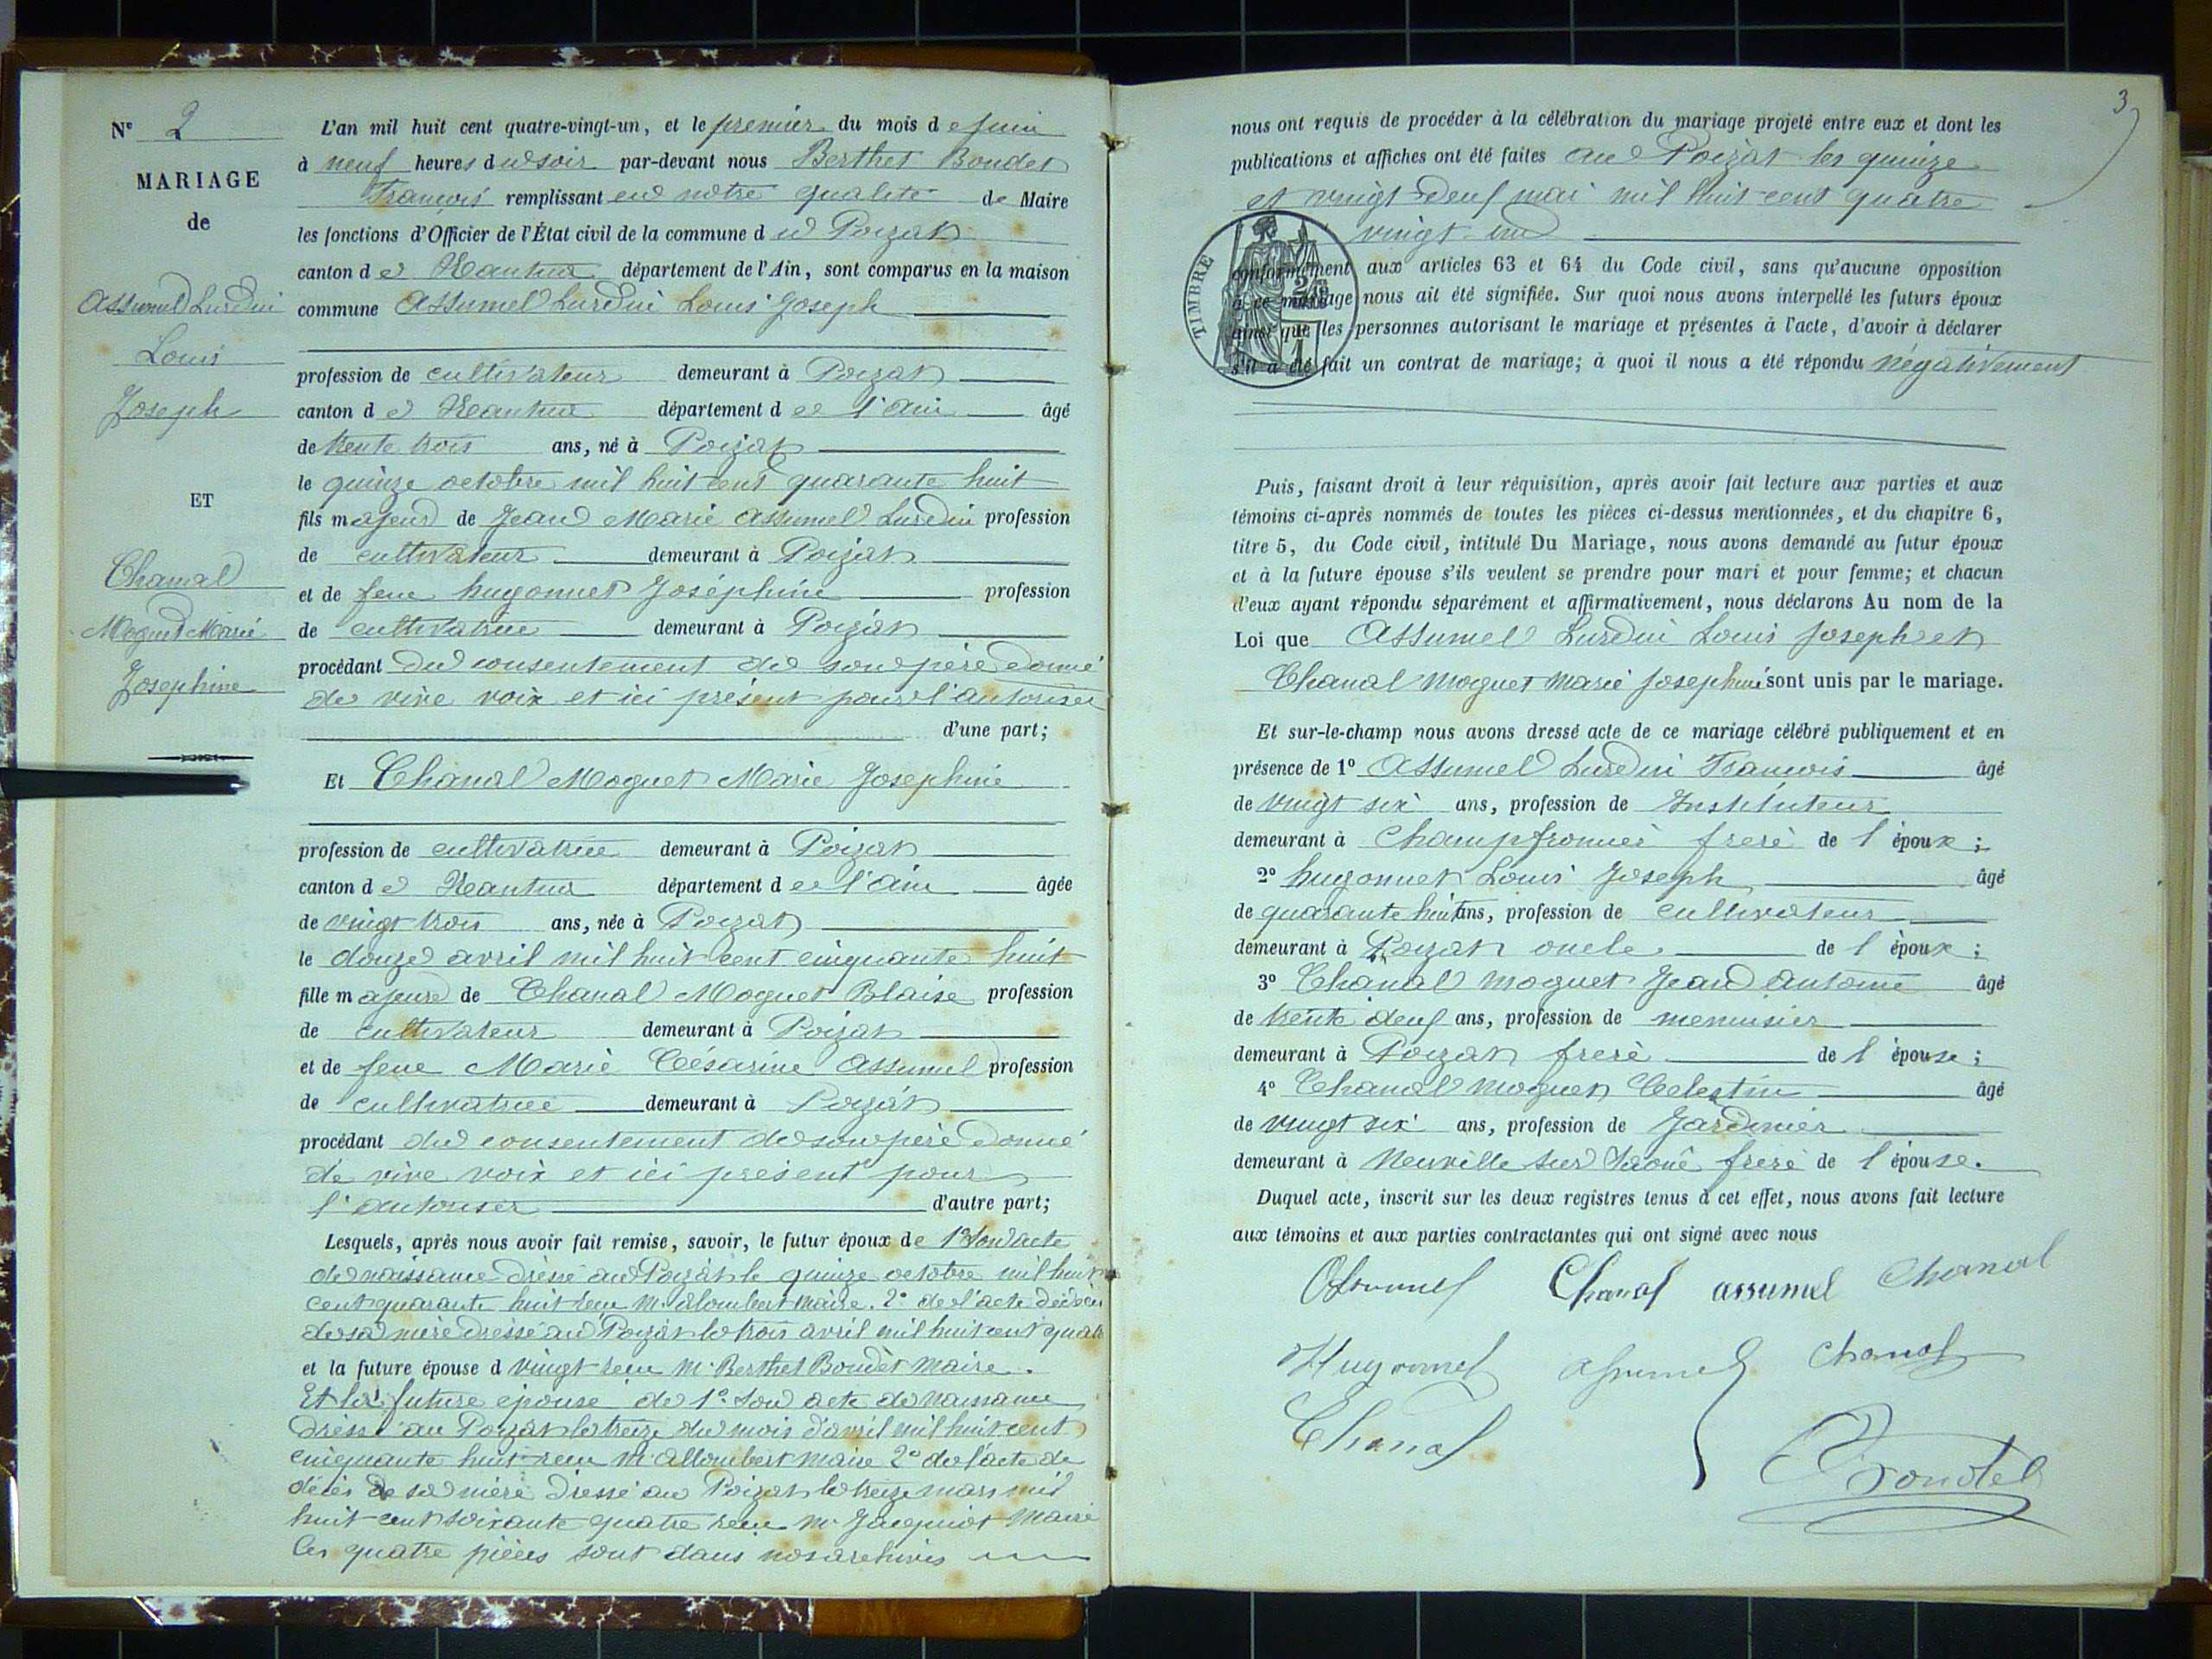 N° 2
MARIAGE
de
Assumel Lurdin
Louis
Joseph
ET
Chanal
Moguet Marie
Josephine
L'an mil huit cent quatre-vingt-un, et le premier du mois de juin
à neuf heures du soir par-devant nous Berthet Bondet
François remplissant en notre qualité de Maire
les fonctions d'Officier de l'État civil de la commune du Poizat
canton de Nantua département de l'Ain, sont comparus en la maison
commune Assumel Lurdin Louis Joseph
profession de cultivateur demeurant à Poizat
canton de Nantua département de l'Ain âgé
de trente trois ans, né à Poizat
le quinze octobre mil huit cent quarante huit
fils majeur de Jean Marie Assumel Lurdin profession
de cultivateur demeurant à Poizat
et de feue hugonnet Joséphine profession
de cultivatrice demeurant à Poizat
procédant du consentement de son père donné
de vive voix et ici présent pour l'autoriser
d'une part;
Et Chanal Moguet Marie Josephine
profession de cultivatrice demeurant à Poizat
canton de Nantua département de l'Ain âgée
de vingt trois ans, née à Poizat
le douze avril mil huit cent cinquante huit
fille majeure de Chanal Moguet Blaise profession
de cultivateur demeurant à Poizat
et de feue Marie Césarine Assumel profession
de cultivatrice demeurant à Poizat
procédant du consentement de son père donné
de vive voix et ici présent pour
l'autoriser d'autre part;
Lesquels, après nous avoir fait remise, savoir, le futur époux de 1° Son acte
de naissance dressé au Poizat le quinze octobre mil huit
cent quarante huit reçu M. Alombert Maire. 2° de l'acte de décès
de sa mère dressé au Poizat le trois avril mil huit cent quatre
et la future épouse d vingt reçu M. Berthet Bondet Maire.
Et la future épouse de 1° Son acte de naissance
dressé au Poizat le treize du mois d'avril mil huit cent
cinquante huit reçu M. Allombert Maire 2° de l'acte de
décès de sa mère dressé au Poizat le treize mars mil
huit cent soixante quatre reçu M. Jacquiot Maire
Ces quatre pièces sont dans nos archives
3
nous ont requis de procéder à la célébration du mariage projeté entre eux et dont les
publications et affiches ont été faites au Poizat les quinze
et vingt-deux mai mil huit cent quatre
vingt un
TIMBRE
conformément aux articles 63 et 64 du Code civil, sans qu'aucune opposition
à ce mariage nous ait été signifiée. Sur quoi nous avons interpellé les futurs époux
ainsi que les personnes autorisant le mariage et présentes à l'acte, d'avoir à déclarer
s'il a été fait un contrat de mariage; à quoi il nous a été répondu négativement
Puis, faisant droit à leur réquisition, après avoir fait lecture aux parties et aux
témoins ci-après nommés de toutes les pièces ci-dessus mentionnées, et du chapitre 6,
titre 5, du Code civil, intitulé Du Mariage, nous avons demandé au futur époux
et à la future épouse s'ils veulent se prendre pour mari et pour femme; et chacun
d'eux ayant répondu séparément et affirmativement, nous déclarons Au nom de la
Loi que Assumel Lurdin Louis Joseph et
Chanal Moguet Marie Josephine sont unis par le mariage.
Et sur-le-champ nous avons dressé acte de ce mariage célébré publiquement et en
présence de 1° Assumel Lurdin François âgé
de vingt six ans, profession de Instituteur
demeurant à Champfromier frère de l'époux;
2° hugonnet Louis Joseph âgé
de quarante huit ans, profession de cultivateur
demeurant à Poizat oncle de l'époux;
3° Chanal Moguet Jean Antoine âgé
de trente deux ans, profession de menuisier
demeurant à Poizat frère de l'épouse;
4° Chanal Moguet Celestin âgé
de vingt six ans, profession de Jardinier
demeurant à Neuville sur Saône frère de l'épouse.
Duquel acte, inscrit sur les deux registres tenus à cet effet, nous avons fait lecture
aux témoins et aux parties contractantes qui ont signé avec nous
Assumel Chanal assumel Chanal
Hugonnet assumel chanal
Chanal
Bondet